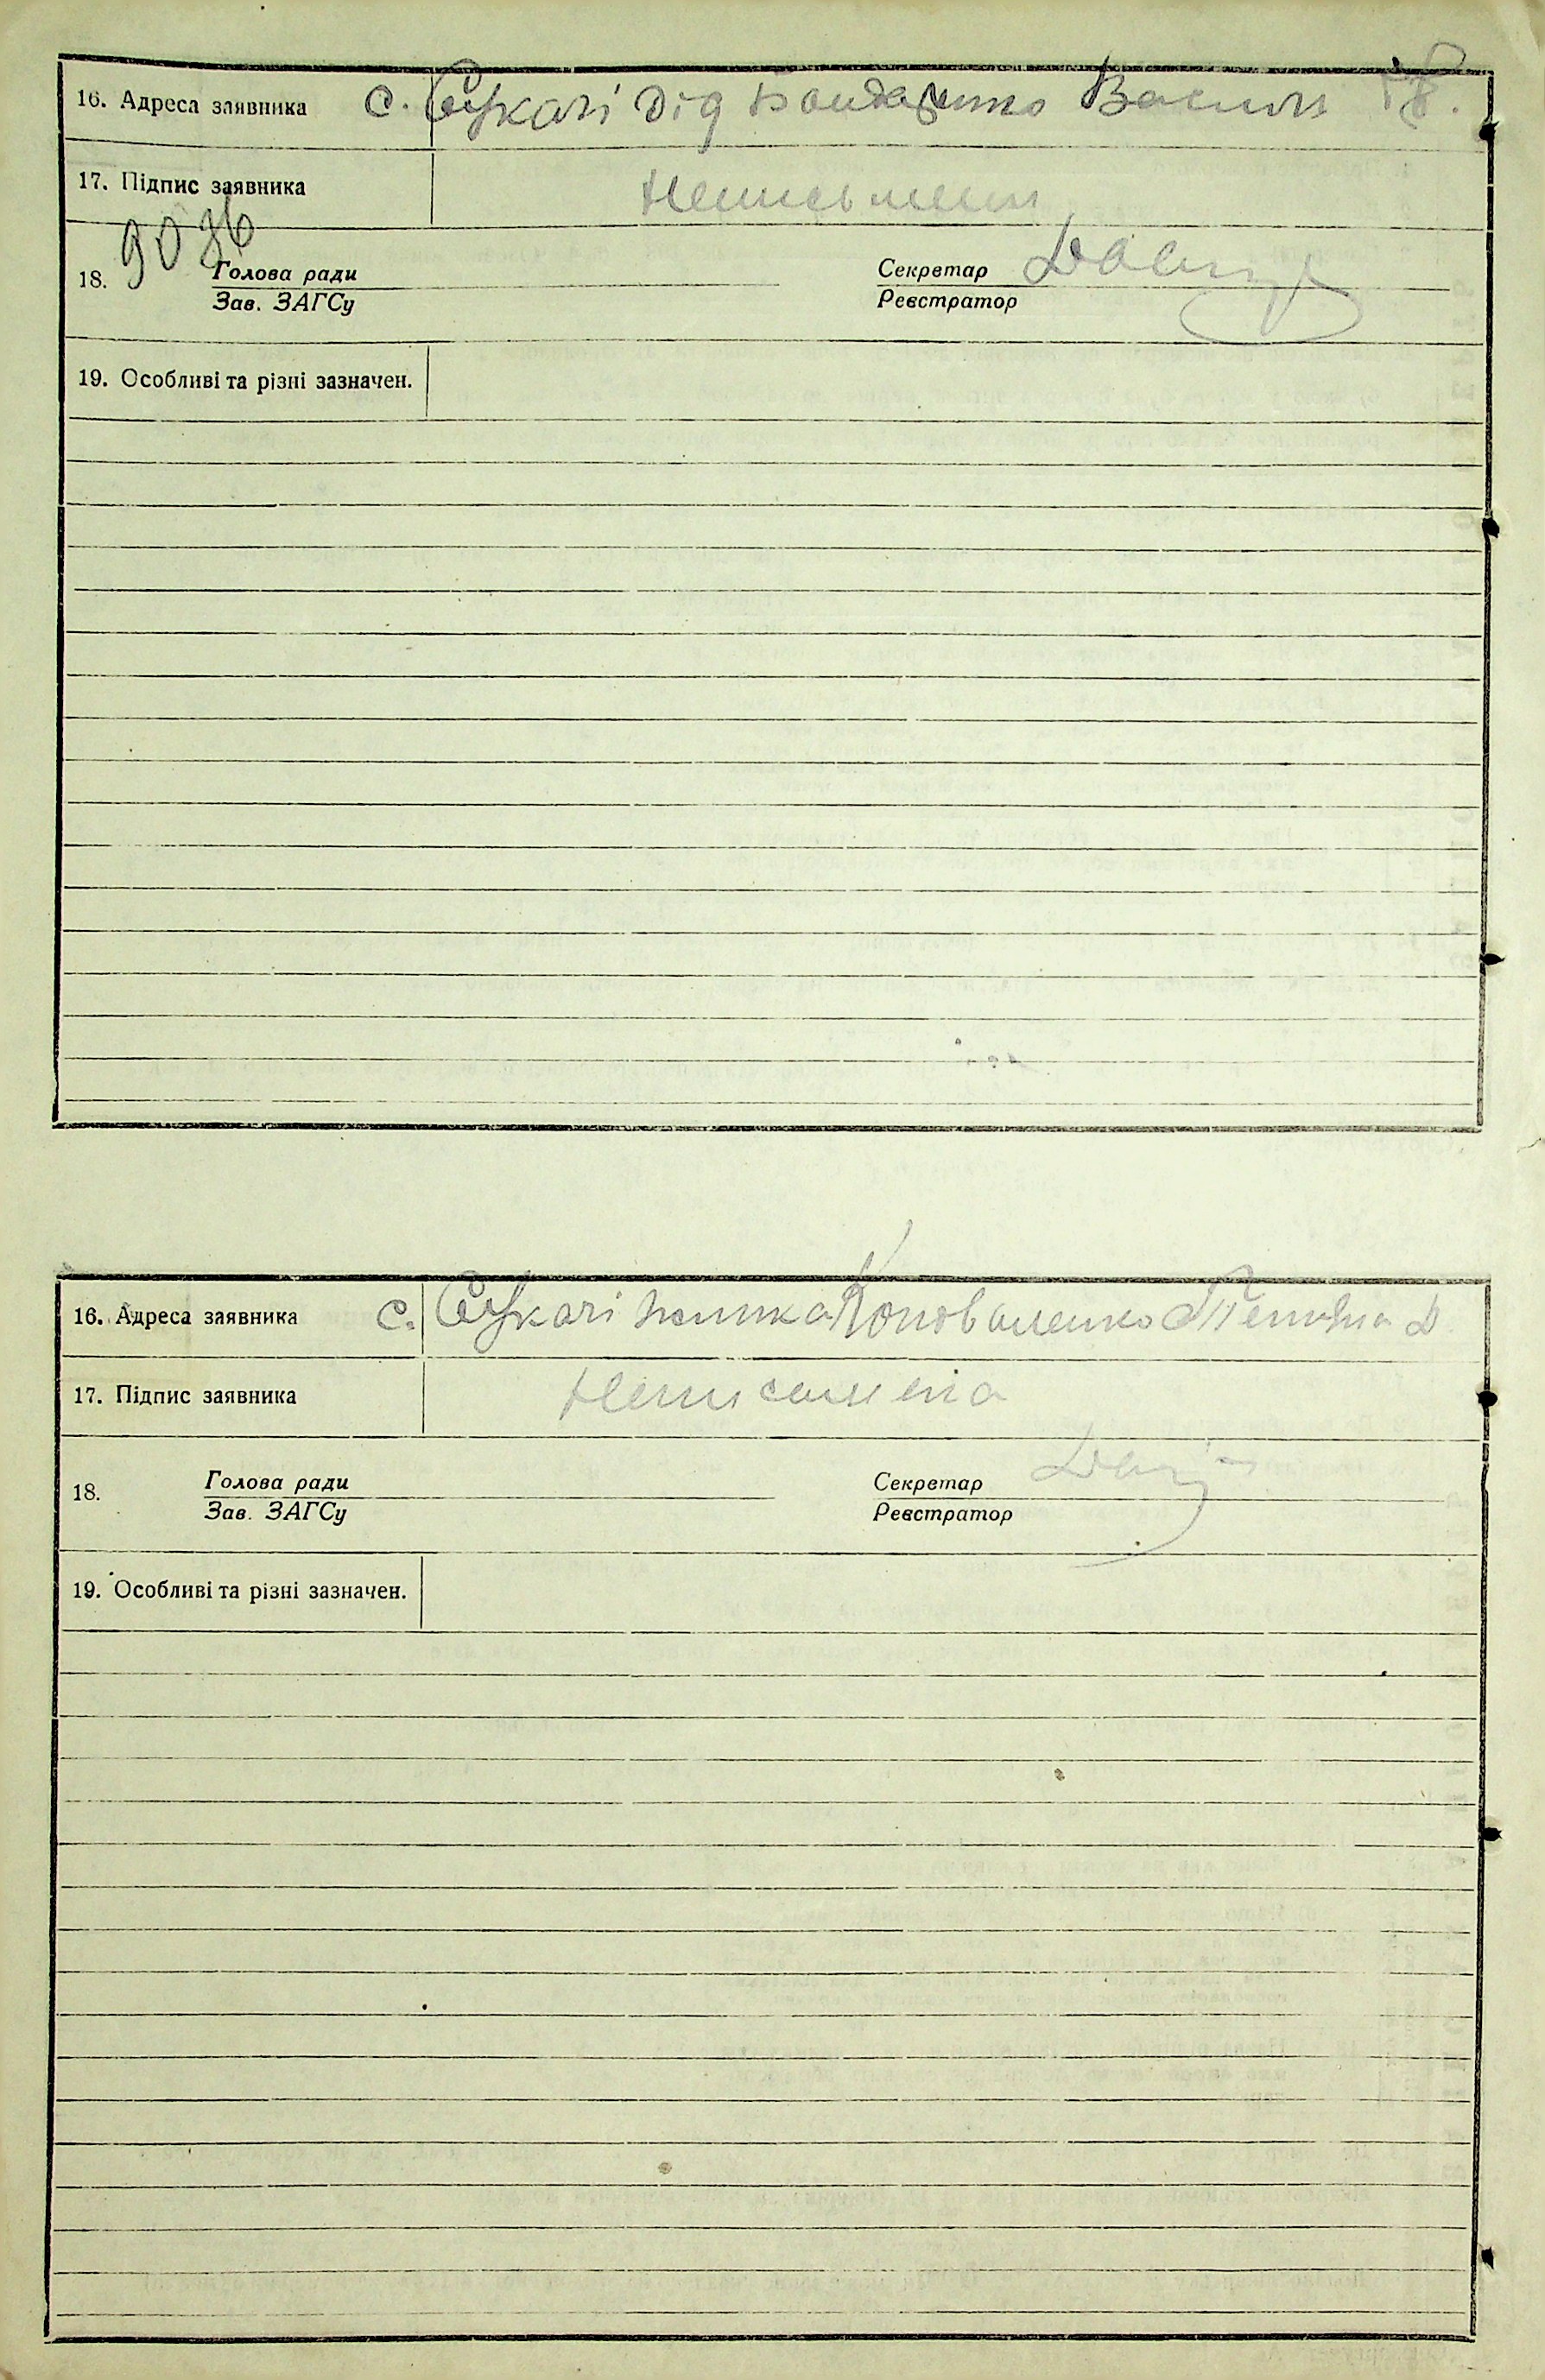 16. Адреса заявника с. Сукачі дід Бондаренко Василь
17. Підпис заявника Неписьмен
9036
18. Голова ради Секретар
Зав. ЗАГСу Реєстратор
19. Особливі та різні зазначен.
16. Адреса заявника с. Сукачі Коноваленко
17. Підпис заявника Неписмена
18. Голова ради Секретар
Зав. ЗАГСу Реєстратор
19. Особливі та різні зазначен.